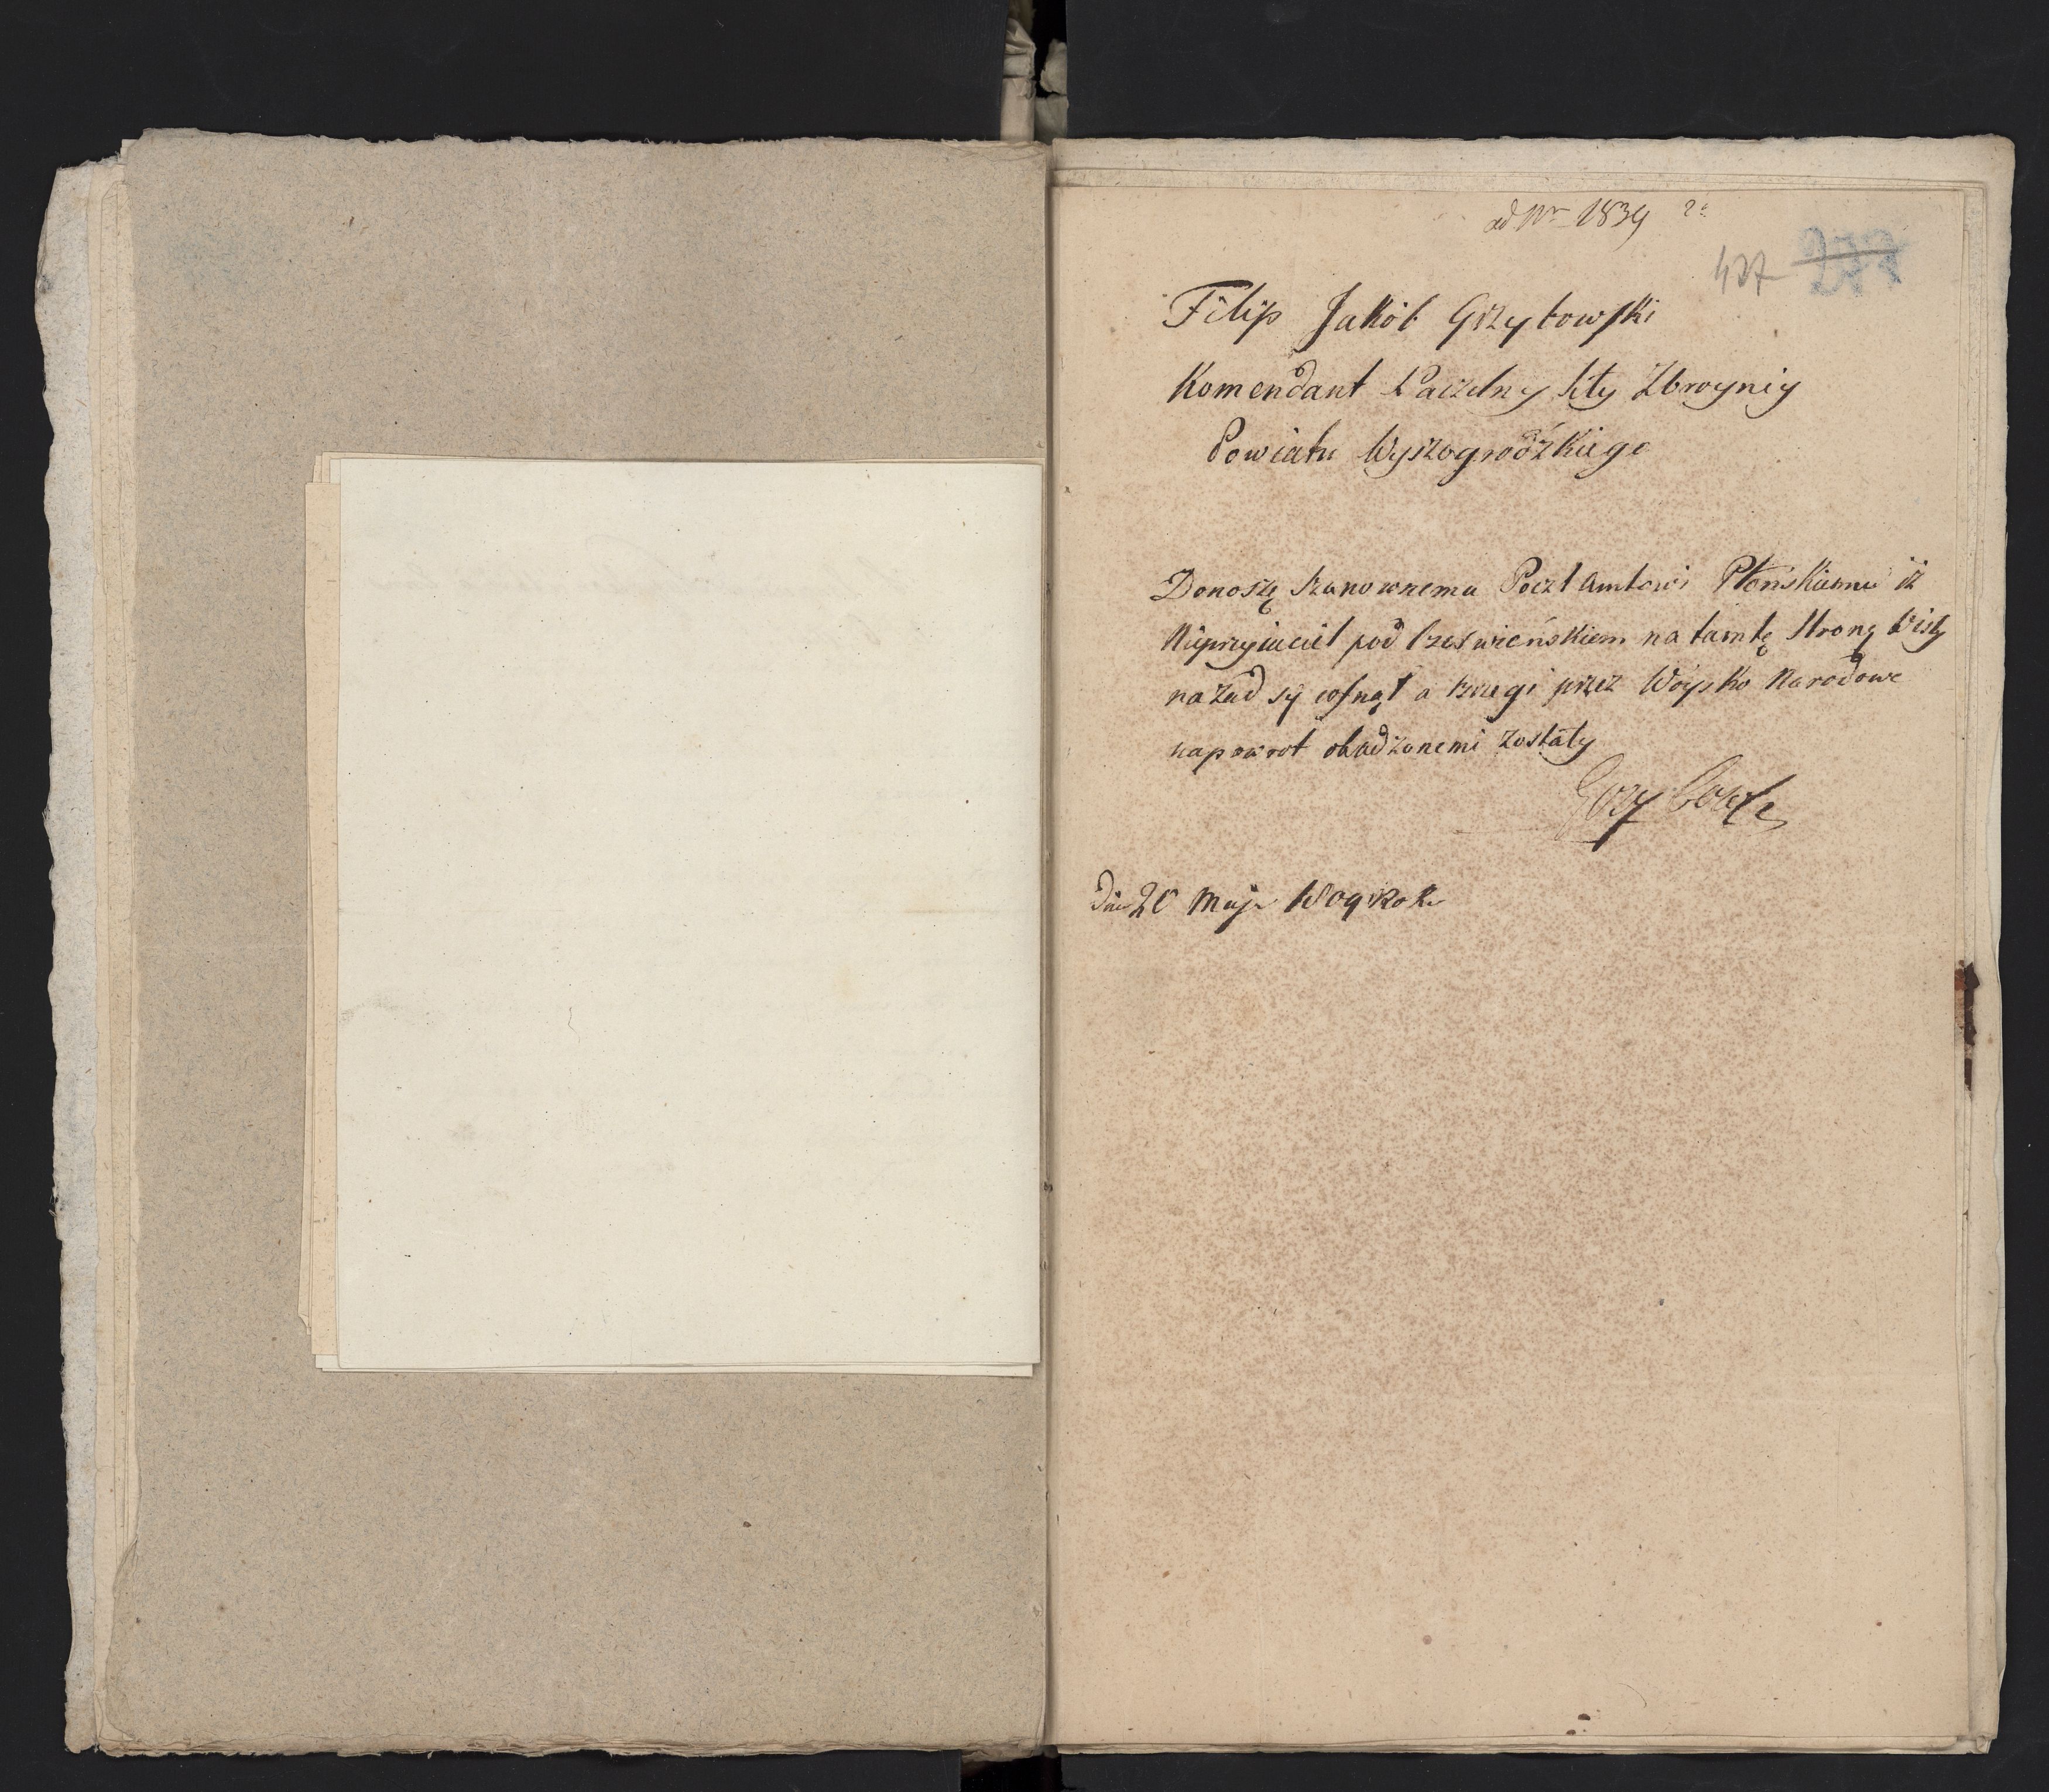 ad Nr 1839
427 277
Filip Jakób Grzybowski
Komendant Naczelny siły Zbroyniy
Powiatu Wyszogrodzkiego
Donoszę Szanownemu Poczt Amtowi Płońskiemu iż
Nieprzyiaciel pod Czerwieńskiem na tamtę Stronę Wisły
nazad się cofnął a brzegi przez Woysko Narodowe
napowrot obsadzonemi zostały
Grzybowski
Dnia 20 Maja 1809 Roku